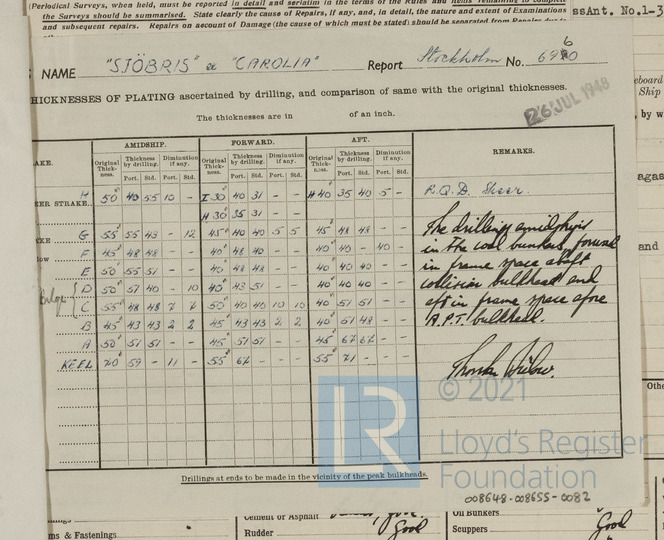 (Periodical Surveys, when held, must be reported in detail and seriatim in the terms of the Rules and
the Surveys should be summarised. State clearly the cause of Repairs, if any, and, in detail, the nature and extent of Examinations
and subsequent repairs. Repairs on account of Damage (the cause of which must be stated) should be separated from Repairs due to
ssAnt. No.1-3
NAME "SJÖBRIS" ex "CAROLIA" Report Stockholm No.
THICKNESSES OF PLATING ascertained by drilling, and comparison of same with the original thicknesses.
26 JUL 1948
The thicknesses are in of an inch.
AMIDSHIP. FORWARD. AFT. REMARKS.
AKE. Original Thickness. Thickness by drilling. Diminution if any. Original Thickness. Thickness by drilling. Diminution if any. Original Thickness. Thickness by drilling. Diminution if any.
Port. Std. Port. Std. Port. Std. Port. Std. Port. Std. Port. Std.
ER STRAKE. H 50 40 55 10 - I 30 40 31 - - H 40 35 40 5 - R.Q.D. Sheer.
H 30 35 31
G 55 55 43 - 12 45 40 40 5 5 45 48 48 - - The drillings amidships
F 45 48 48 - - 40 48 40 - - 40 40 - 40 - in the coal bunkers, forward
E 50 55 51 - - 40 48 48 - - 40 40 40 - - in frame space abaft
Bilge D 50 51 40 - 10 40 43 51 - - 40 40 40 - - collision bulkhead and
C 55 48 48 7 7 50 40 40 10 10 40 51 51 - - aft in frame space afore
B 45 43 43 2 2 45 43 43 2 2 40 51 48 - - A.P.T. bulkhead.
A 50 51 51 - - 45 51 51 - - 45 67 67 - -
KEEL 70 59 - 11 - 55 67 - - 55 71 - -
© 2021
Lloyd's Register
Foundation
Drillings at ends to be made in the vicinity of the peak bulkheads.
008648-008655-0082
Cement or Asphalt Good Oil Bunkers
ms & Fastenings Rudder Good Scuppers Good